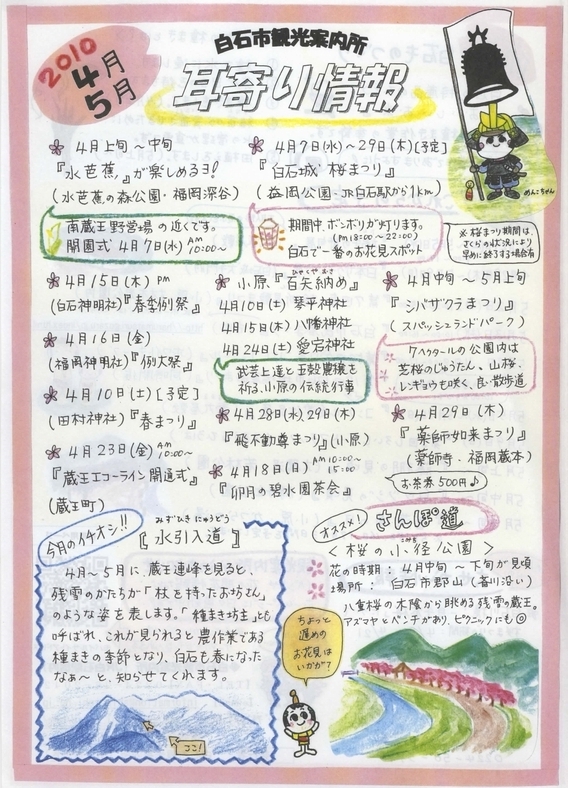 2010
4月
5月
白石市観光案内所
耳寄り情報
めんこちゃん
4月上旬～中旬
『水芭蕉』が楽しめるヨ!
(水芭蕉の森公園・福岡深谷)
南蔵王野営場の近くです。
開園式 4月7日(水) AM10:00～
4月7日(水)～29日(木)[予定]
『白石城 桜まつり』
(益岡公園・JR白石駅から1km)
期間中、ボンボリが灯ります。
(PM18:00～22:00)
白石で一番のお花見スポット
※桜まつり期間は
さくらの状況により
早めに終了する場合有
4月15日(木) PM
(白石神明社)『春季例祭』
4月16日(金)
(福岡神明社)『例大祭』
4月10日(土)[予定]
(田村神社)『春まつり』
4月23日(金) AM10:00～
『蔵王エコーライン開通式』
(蔵王町)
小原『百矢納め』
4月10日(土) 琴平神社
4月15日(木) 八幡神社
4月24日(土) 愛宕神社
武芸上達と五穀豊穣を
祈る、小原の伝統行事
4月28日(水)、29日(木)
『飛不動尊まつり』(小原)
4月18日(日) AM10:00～15:00
『卯月の碧水園茶会』
4月中旬～5月上旬
『シバザクラまつり』
(スパッシュランドパーク)
7ヘクタールの公園内は
芝桜のじゅうたん。山桜、
レンギョウも咲く、良い散歩道
4月29日(木)
『薬師如来まつり』
(薬師寺・福岡蔵本)
お茶券500円♪
今月のイチオシ!!
みずひきにゅうどう
『水引入道』
4月～5月に、蔵王連峰を見ると、
残雪のかたちが「杖を持ったお坊さん」
のような姿を表します。「種まき坊主」とも
呼ばれ、これが見られると農作業である
種まきの季節となり、白石も春になった
なぁ～と、知らせてくれます。
ココ!
オススメ!
さんぽ道
<桜の小径公園>
花の時期: 4月中旬～下旬が見頃
場所: 白石市郡山(斎川沿い)
八重桜の木陰から眺める残雪の蔵王。
アズマヤとベンチがあり、ピクニックにも◎
ちょっと
遅めの
お花見は
いかが?